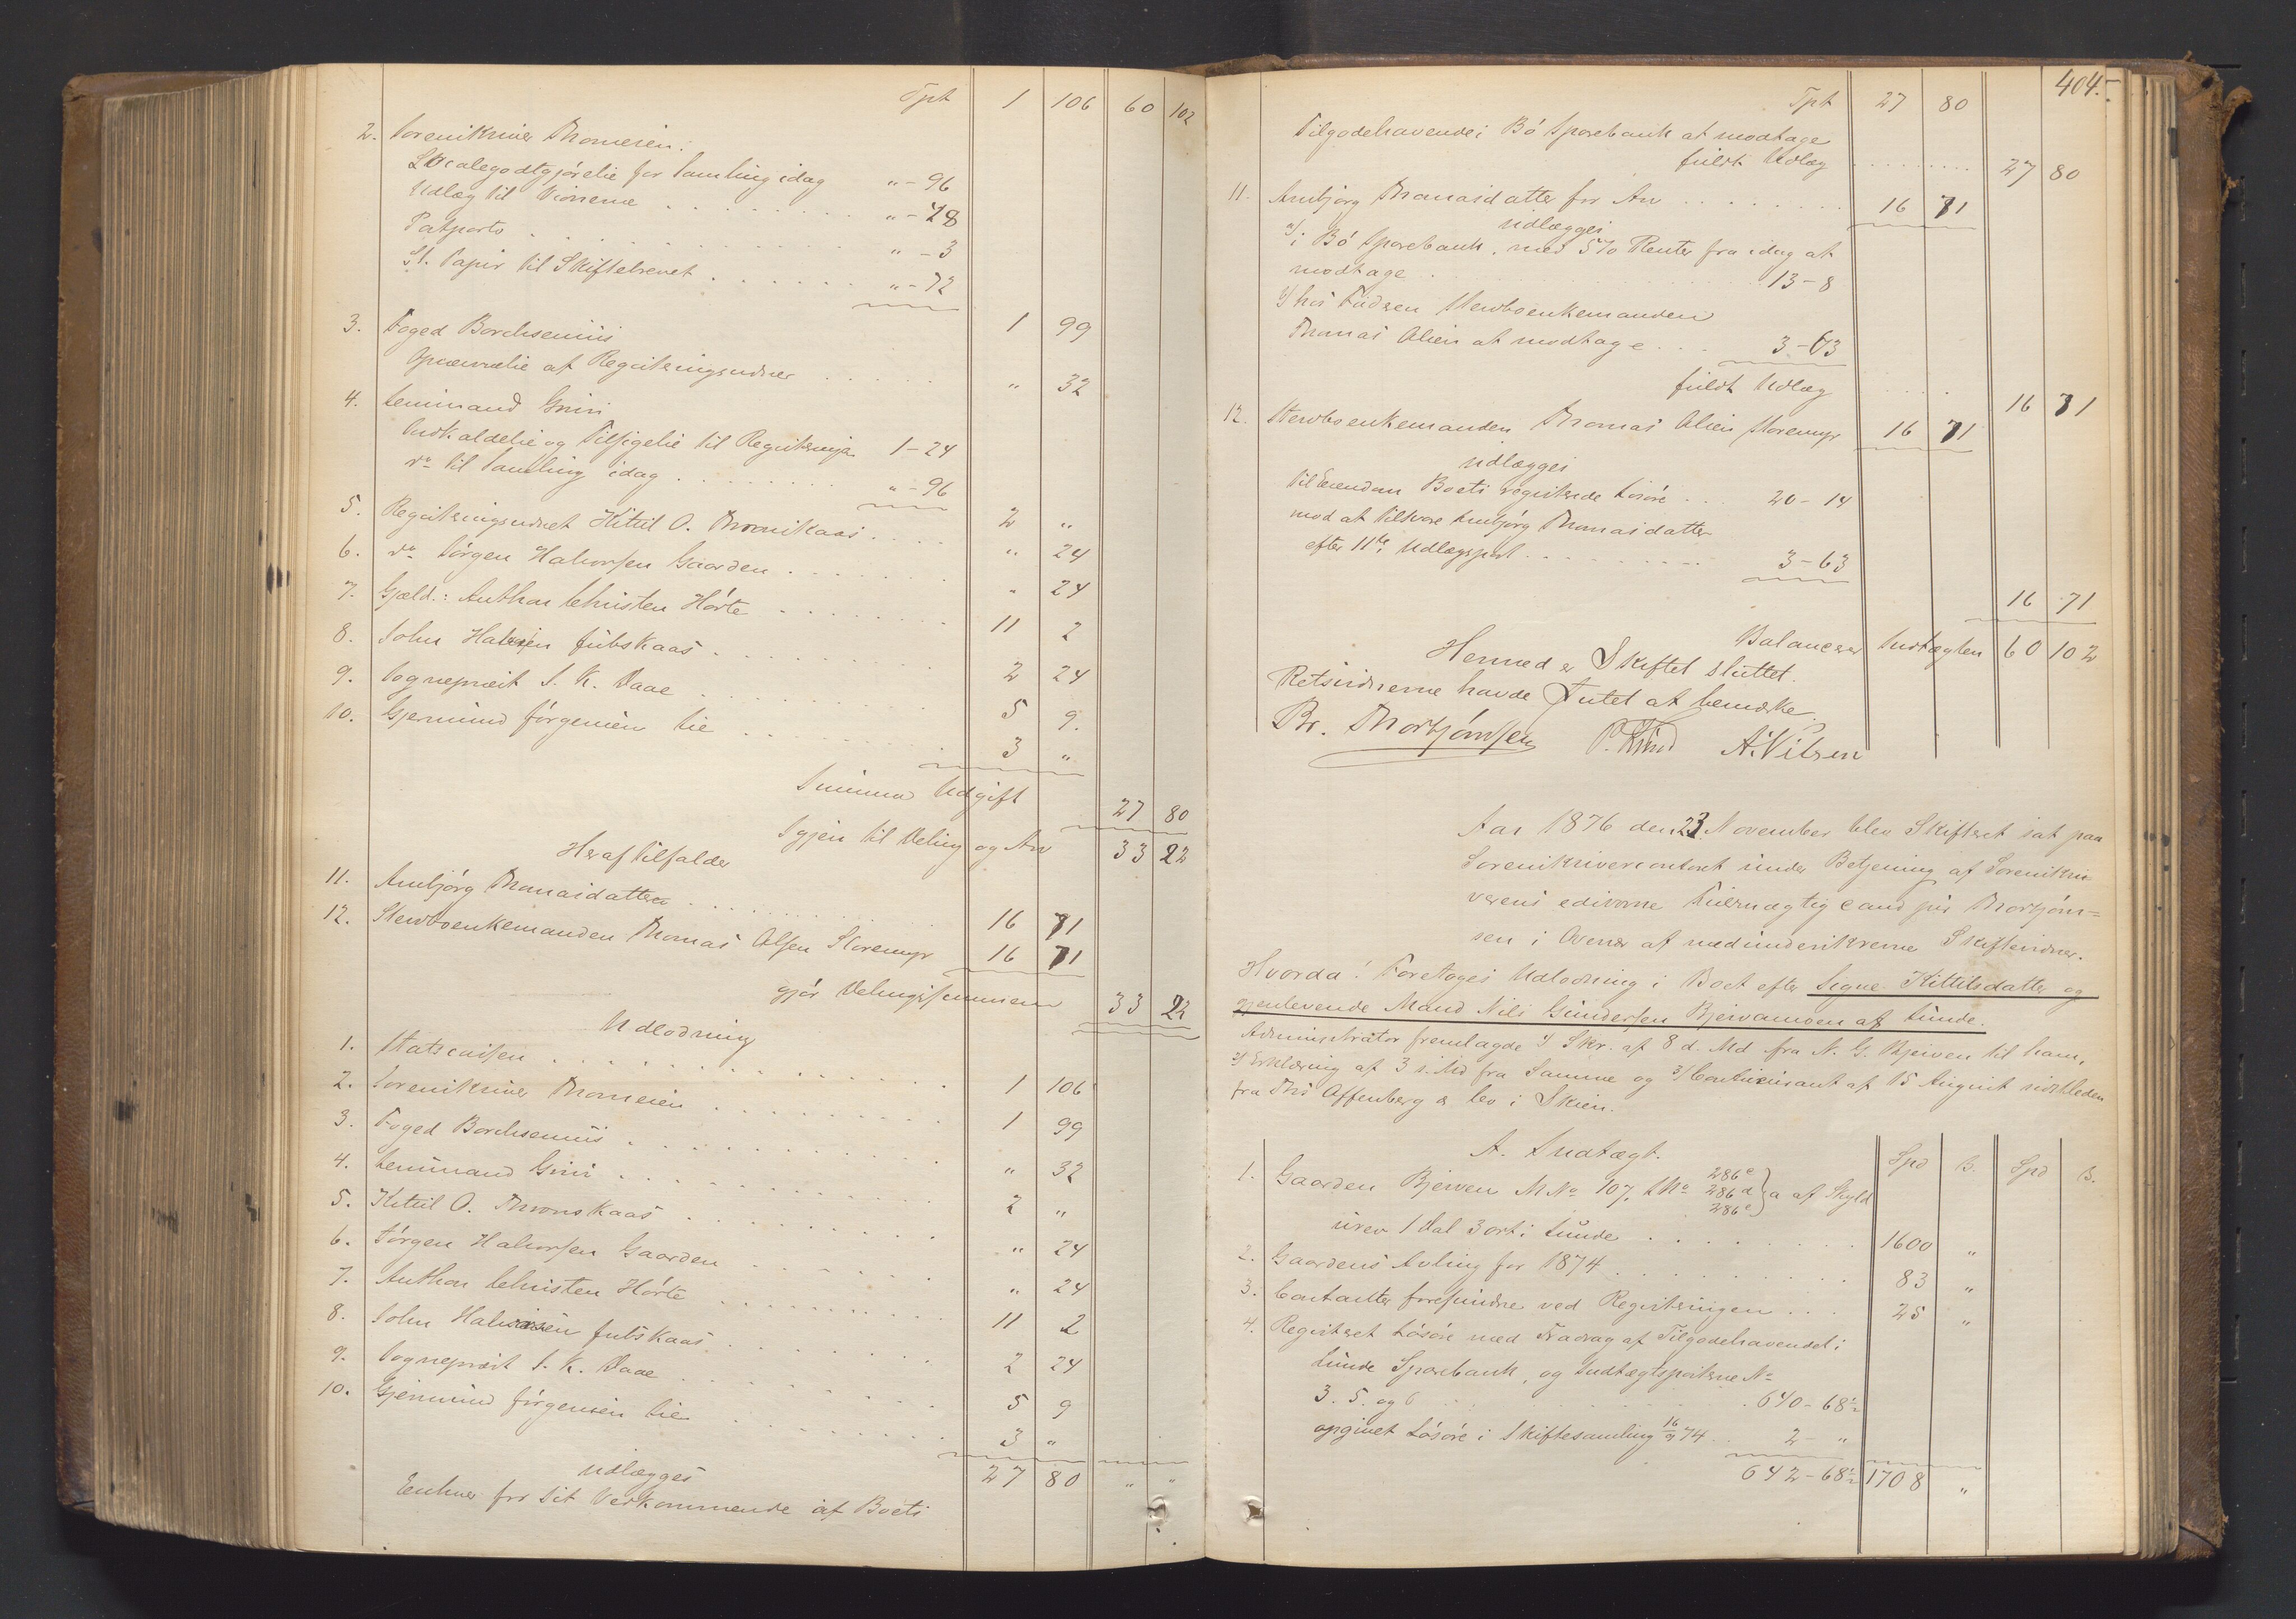 Tpt 1 106 60 102
2. Sorenskriver Thomesen:
Localegodtgjørelse for Samling idag " - 96
Udlæg til Vidnerne . . . " - 48
Postporto . . . " - 3
St. Papir til Skiftebrevet . . . " - 72
1 99
3. Foged Borchsenius
Opnævnelse af Registreringsmænd . . . " 32
4. Lensmand Grini
Indkaldelse og Tilsigelse til Registrering 1 - 24
do til Samling idag . . . " - 96
2 "
5. Registreringsmand Kittil O. Thronskaas . . . " 24
6. do Jørgen Halvorsen Gaarden . . . " 24
7. Gjæld: Anthon Christen Hørte . . . 11 2
8. John Halvorsen Jubskaas . . . 2 24
9. Sogneprest S. K. Vaae . . . 5 9.
10. Gjermund Jørgensen Lie . . . 3 "
Summa Udgift 27 80
Igjen til Deling og Arv 33 22
Heraf tilfalder
11. Ambjørg Thomasdatter . . . 16 71
12. Stervboenkemanden Thomas Olsen Storemyr 16 71
gjør Delingssummen 33 22
Udlodning
1. Statscassen . . . 1 106
2. Sorenskriver Thomesen . . . 1 99
3. Foged Borchsenius . . . " 32
4. Lensmand Grini . . . 2 "
5. Kittil O. Thronskaas . . . " 24
6. Jørgen Halvorsen Gaarden . . . " 24
7. Anthon Christen Hørte . . . 11 2
8. John Halvorsen Jubskaas . . . 2 24
9. Sogneprest S. K. Vaae . . . 5 9
10. Gjermund Jørgensen Lie . . . 3 "
27 80 " "
udlægges
Enhver for sit Vedkommende af Boets
404.
Tpt 27 80
Tilgodehavende i Bø Sparebank at modtage
fuldt Udlæg . . . 27 80
11. Ambjørg Thomasdatter for Arv . . . 16 71
udlægges
a) i Bø Sparebank, med 5% Renter fra idag at
modtage . . . 13 - 8
b) hos Faderen Stervboenkemanden
Thomas Olsen at modtage . . . 3 - 63
fuldt Udlæg . . . 16 71
12. Stervboenkemanden Thomas Olsen Storemyr 16 71
udlægges
til Eiendom Boets registrerede Løsøre . . . 20 - 14
mod at tilsvare Ambjørg Thomasdatter
efter 11te Udlægspost . . . 3 - 63
16 71
Balancerer Indtægten 60 102
Hermed er Skiftet sluttet.
Retsvidnerne havde Intet at bemærke.
Br. Thorbjørnsen P. Lund A. Nilsen
Aar 1876 den 23 November blev Skifteret sat paa
Sorenskrivercontoret under Betjening af Sorenskri-
verens edsvorne Fuldmægtig cand jur Thorbjørn=
sen i Overvær af medunderskrevne Skiftevidner.
Hvorda: Foretoges Udlodning i Boet efter Signe Kittilsdatter og
gjenlevende Mand Nils Gundersen Bjervamoen af Lunde.
Administrator fremlagde 1) Skr. af 8 d. Md fra N. G. Bjerven til ham,
2) Erklæring af 3 s. Md fra Samme og 3) Conto af 15 August sidstleden
fra Ths Affenberg & Leo i Skien.
A. Indtægt. Spd ß. Spd ß.
1. Gaarden Bjerven M No 107, L No 286c 286d 286e } a af Skyld
urev 1 Dal 3 ort i Lunde . . . 1600 "
2. Gaardens Avling for 1874 . . . 83 "
3. Contanter forefundne ved Registreringen . . . 25 "
4. Registreret Løsøre med Fradrag af Tilgodehavendet i
Lunde Sparebank, og Indtægtsposterne No
3. 5. og 6 . . . 640 - 68½
opgivet Løsøre i Skiftesamling 16/9 74 . . . 2 - "
642 - 68½ 1708 "